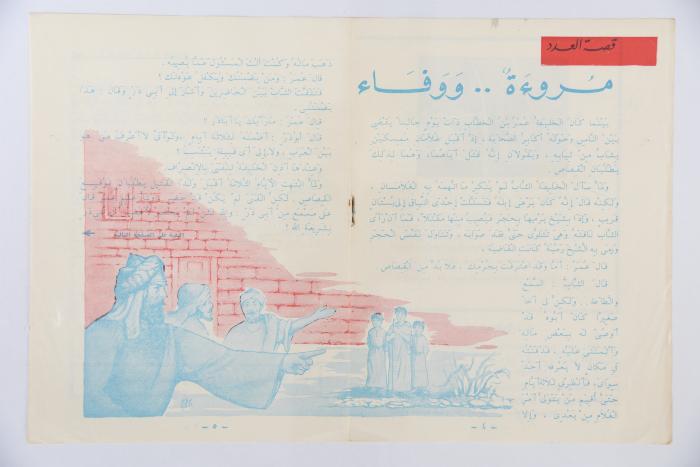 قصة العدد
مُروءَة .. وَوَفاء
بينما كان الخليفة عمر بن الخطاب ذات يوم جالسا يقضي
بين الناس وحوله أكابر الصحابة ، إذ أقبل غلامان ممسكين
بشاب من ثيابه ، ويقولان إنه قتل أباهما ، وهما لذلك
يطلبان القصاص .
ولما سأل الخليفة الشاب لم ينكر ما اتهمه به الغلامان ،
ولكنه قال إنه كان يرعى إبله فتسللت إحدى النياق إلى بستان
قريب ، وإذا بشيخ يرميها بحجر فيصيب منها مقتلا ، فلما أن رأى
الشاب ناقته وهي تتلوى حتى فقد صوابه ، وتناول نفس الحجر
ورمى به الشيخ رمية كانت القاضية .
قال عمر : أما وقد اعترفت بجرمك ، فلا بد من القصاص
قال الشاب : السمع
والطاعة .. ولكن لي أخا
صغيرا كان أبوه قد
أوصى له ببعض ماله
وأتمنني عليه ، فدفنته
في مكان لا يعرفه أحد
سواي ، فأنظرني ثلاثة أيام
حتى أقيم من يتولى أمر
الغلام من بعدى ، وإلا
- ٤ -
ذهب ماله وكنت أنت المسئول عما يصيبه .
قال عمر : ومن يضمنك ويتكفل عودتك ؟
فتلفت الشاب بين الحاضرين وأشار إلى أبي ذر وقال : هذا
يضمنني .
قال عمر : ما رأيك يا أبا ذر ؟
قال أبو ذر : أضمنه ثلاثة أيام ،
بين العرب ، ولا إلى أي قبيلة ينتسب !
وعندها أذن الخليفة للفتى بالانصراف
ولما انتهت الأيام الثلاثة أقبل
القصاص ، لكن الفتى لم يكن
على مسمع من أبي ذر
بشريعة الله !
البقية على الصفحة التالية
- ٥ -